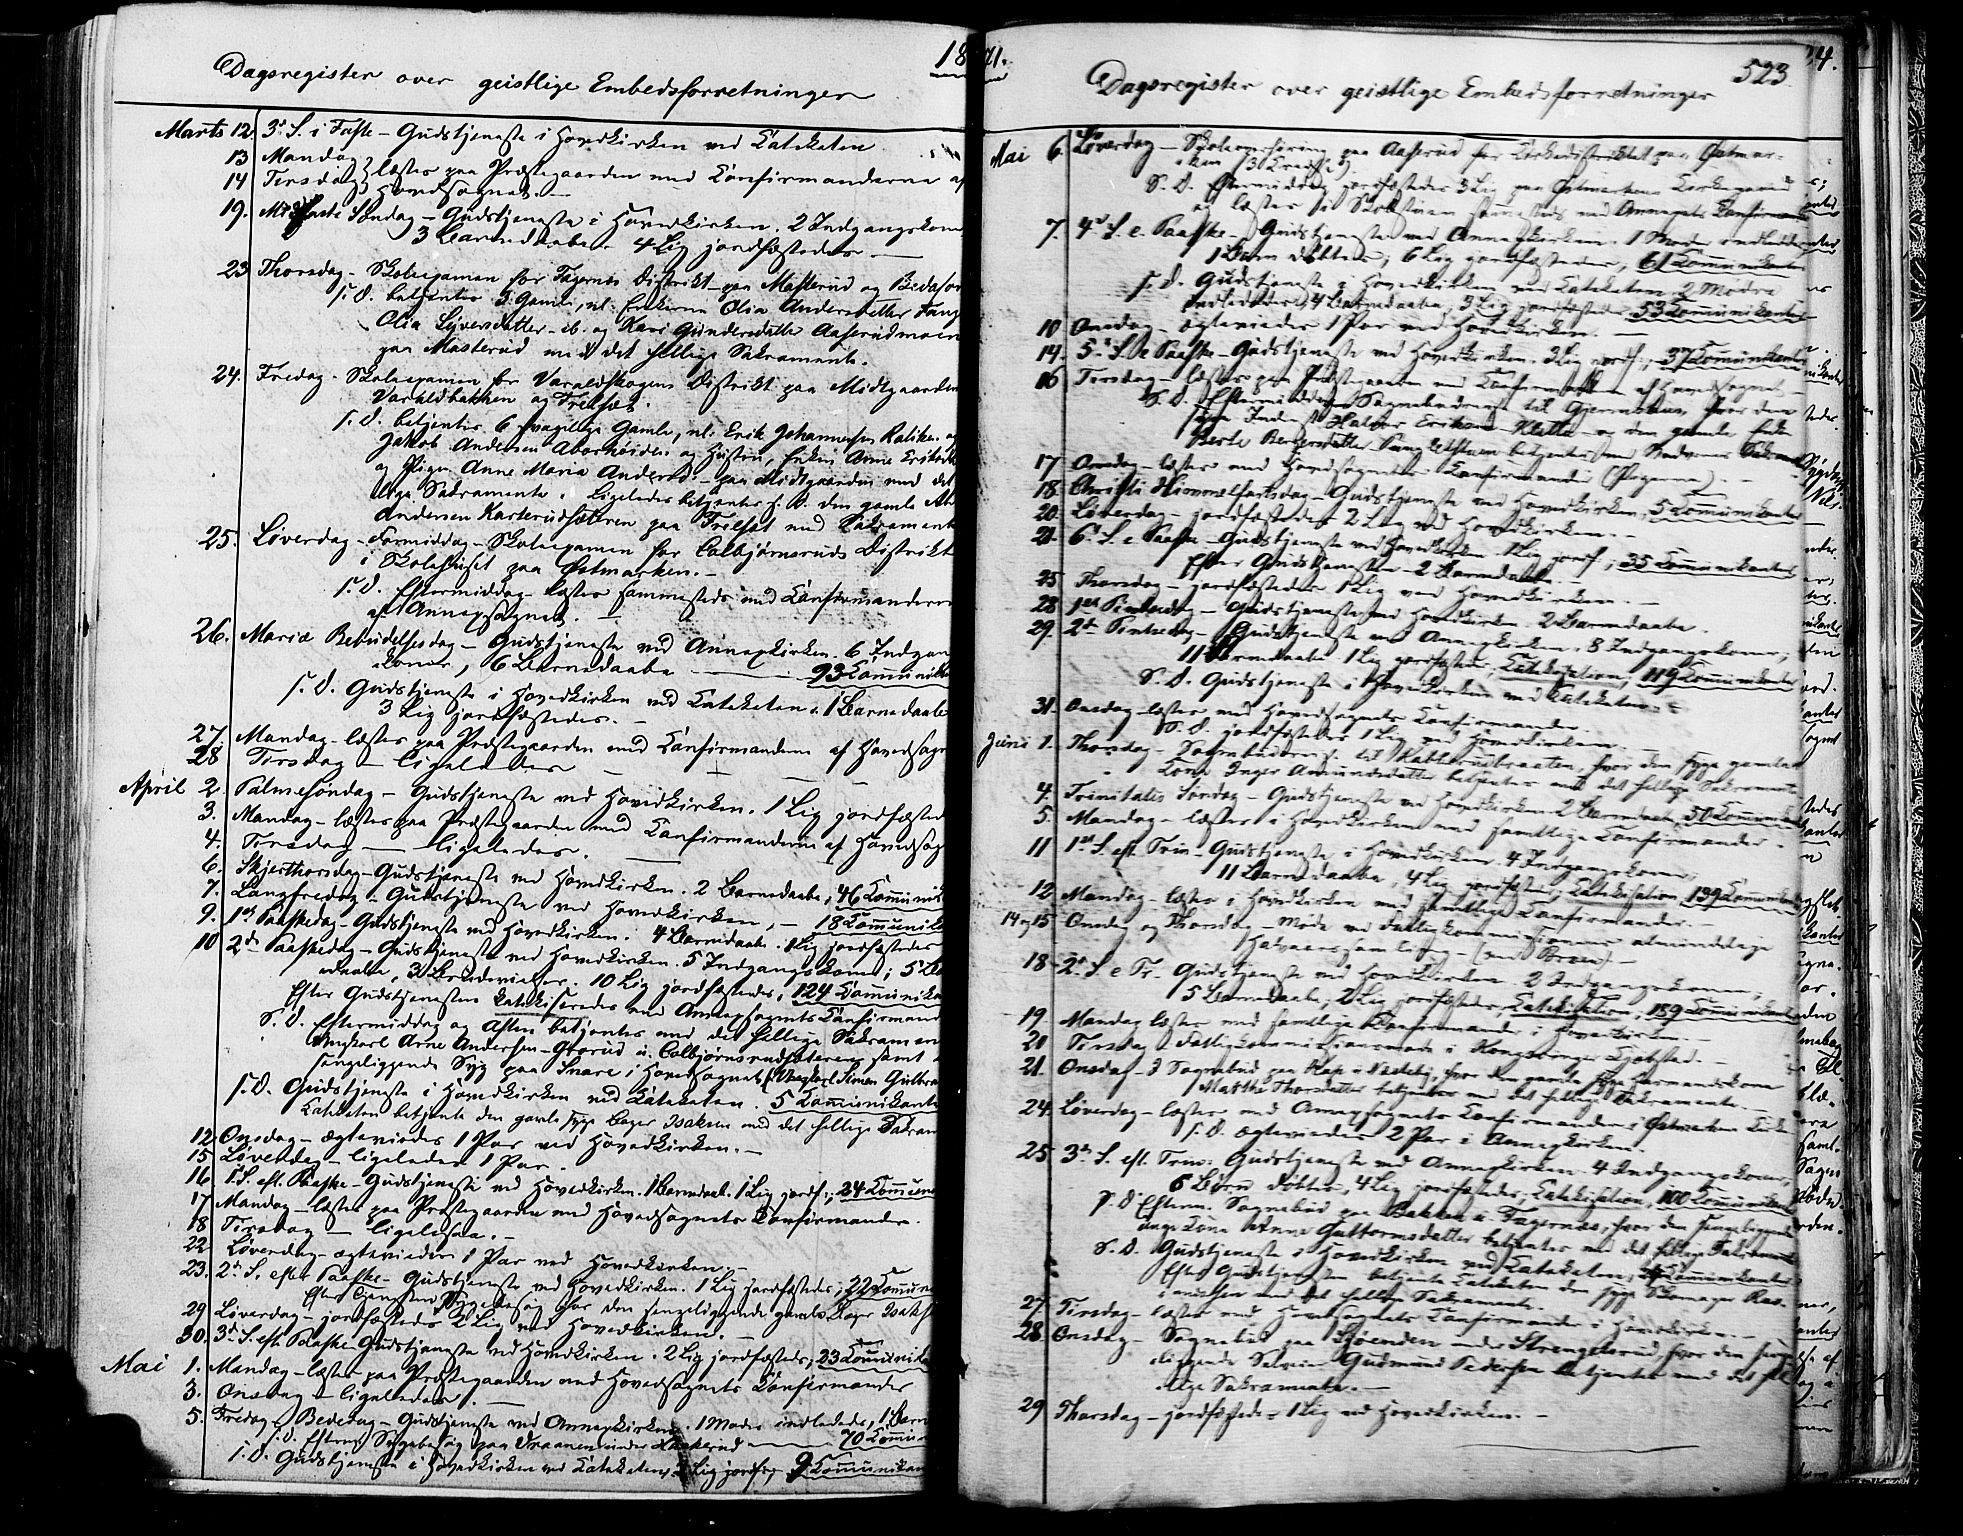 1871.
Dagsregister over geistlige Embedsforretninger
Marts 12. 3d S. i Faste – Gudstjeneste i Hovedkirken ved Catekaten
13 Mandag } læstes paa Præstegaarden med Confirmanderne af
14 Tirsdag } Hovedsognet. –
19. Midfaste Søndag – Gudstjeneste i Hovedkirken. 2 Indgangskon
3 Barnedaabe. 4 Lig jordfæstedes. –
23 Thorsdag – Skoleexamen for Fagernæs Distrikt – paa Masterud og
s. D. betjentes 3 Gamle, nl. Enkerne Olia Andersdatter
Olia Syversdatter – ib. og Kari Gundersdatter Aaserud
paa Masterud med det hellige Sakramente.
24. Fredag – Skoleexamen for Varaldskogens Distrikt paa Midtgaarden
Varaldbakken og Frilset.
s. D. betjentes 6 svagelige Gamle, nl. Erik Johannesen
Jakob Andersen Aborhøiden og Hustru, Enken Anne
og Pigen Anne Maria Andersd. – paa Midtgaarden med det
lige Sakramente. Ligeledes betjentes s. D. den gamle
Andersen Karterudsæteren paa Frilset med Sakramente
25. Løverdag – Formiddag – Skoleexamen for Colbjørnsruds Distrikt
i Skolehuset paa Østmarken. –
s. D. Eftermiddag læstes sammesteds med Confirmanderne
af Annexsognet. –
26. Mariæ Bebudelsesdag – Gudstjeneste ved Annexkirken. 6 Indgan
koner, 6 Barnedaabe – 93 Communik
s. D. Gudstjeneste i Hovedkirken ved Catekaten. 1 Barnedaab
3 Lig jordfæstedes. –
27. Mandag – læstes paa Præstegaarden med Confirmanderne af Hovedsogn
28 Tirsdag – ligeledes –
April 2. Palmesøndag – Gudstjeneste ved Hovedkirken. 1 Lig jordfæsted
3. Mandag – læstes paa Præstegaarden med Confirmanderne af Hovedsog
4. Tirsdag – ligeledes. –
6. Skjærthorsdag – Gudstjeneste ved Hovedkirken. 2 Barnedaabe, 46 Communik
7. Langfredag – Gudstjeneste ved Hovedkirken, – 18 Communik
9. 1st Paaskedag – Gudstjeneste ved Hovedkirken. 4 Barnedaabe. 1 Lig jordfæstedes
10 2den Paaskedag – Gudstjeneste ved Hovedkirken. 5 Indgangskoner; 5 Ba
nedaabe, 3 Brudevielser. 10 Lig jordfæstedes; 124 Communika
Efter Gudstjenesten katekiseredes med Annexsognets Confirmand
s. D. Eftermiddag og Aften betjentes med det hellige Sakramen
Ungkarl Arne Andersen – Grorud u. Colbjørnsrudsæteren samt
sengeliggende Syg paa Snare i Hovedsognet (Ungkarl Simen Gulbra
s. D. Gudstjeneste i Hovedkirken ved Catekaten. 5 Communikante
Catekaten betjente den gamle syge Isaksen med det hellige Sakram
12. Onsdag – ægteviedes 1 Par ved Hovedkirken. –
15 Løverdag – ligeledes 1 Par.
16. 1. S. eft. Paaske – Gudstjeneste ved Hovedkirken. 1 Barnedaab. 1 Lig jordf.; 24 Commun
17 Mandag – læstes paa Præstegaarden med Hovedsognets Confirmander.
18 Tirsdag – ligeledes. –
22 Løverdag – ægteviedes 1 Par ved Hovedkirken. –
23. 2den S. efter Paaske – Gudstjeneste ved Hovedkirken. 1 Lig jordfæstedes; 22 Commun
Efter Tjenesten Sygebesøg hos den sengeliggende gamle
29 Løverdag – jordfæstedes 2 Lig ved Hovedkirken.
30. 3d S. eft. Paaske – Gudstjeneste ved Hovedkirken. 2 Lig jordfæstedes; 23 Communika
Mai 1. Mandag – læstes paa Præstegaarden med Hovedsognets Confirmander
3. Onsdag – ligeledes. –
5. Fredag – Bededag – Gudstjeneste ved Annexkirken. 1 Moder indledede, 1 Barn
s. D. Efterm. Sygebesøg paa under – 70 Commun
s. D. Gudstjeneste i Hovedkirken ved Catekaten, 2 Lig jordf. 9 Communikan
523
Dagsregister over geistlige Embedsforretninger
Mai 6. Løverdag – paa Aaserud for Østmar-
ken (3 Kredse).
s. D. Eftermiddag jordfæstedes 3 Lig paa Østmarkens Kirkegaard
og læstes i Skolestuen sammesteds med Annexets Confirmand
7. 4de S. e. Paaske – Gudstjeneste ved Annexkirken. 1 Moder indlededes
1 Barn døbtes; 6 Lig jordfæstedes; 61 Communikanter
s. D. Gudstjeneste i Hovedkirken ved Catekaten. 2 Mødre
indlededes; 4 Barnedaabe, 3 Lig jordfæstedes; 53 Communikanter
10 Onsdag – ægteviedes 1 Par ved Hovedkirken. –
14. 5te S. e. Paaske – Gudstjeneste ved Hovedkirken. 3 Lig jordf.; 37 Communikanter
16 Tirsdag – læstes paa Præstegaarden med Confirmanderne af Hovedsognet. –
s. D. Eftermiddag – Sognebudreise til Gjermshus, hvor den
syge Halvor Eriksen Kletta – og den gamle Enke
Berte betjentes med Nadverens Sakram
17 Onsdag – læstes med Hovedsognets Confirmander (Pigerne). –
18. Christi Himmelfartsdag – Gudstjeneste ved Hovedkirken, 5 Communikanter
20. Løverdag – jordfæstedes 2 Lig ved Hovedkirken. –
21. 6te S. e. Paaske – Gudstjeneste ved Hovedkirken. 1 Lig jordf.; 35 Communikanter
Efter Gudstjenesten – 2 Barnedaabe. –
25 Thorsdag – jordfæstedes 1 Lig ved Hovedkirken. –
28 1st Pintsedag – Gudstjeneste ved Hovedkirken. 2 Barnedaabe.
29. 2den Pintsedag – Gudstjeneste ved Annexkirken. 8 Indgangskoner;
11 Barnedaabe. 1 Lig jordfæstedes, Catekisation, 119 Communikanter
s. D. Gudstjeneste i Hovedkirken ved Catekaten. –
31. Onsdag læstes med Hovedsognets Confirmander.
s. D. jordfæstedes 1 Lig ved Hovedkirken. –
Juni 1. Thorsdag – Sognebudreise til Kabberudbraaten, hvor den syge gamle
Kone Inger Amundsdatter betjentes med det hellige Sakramente
4. Trinitatis Søndag – Gudstjeneste ved Hovedkirken. 2 Barnedaabe, 50 Communik
5. Mandag – læstes i Hovedkirken med samtlige Confirmander. –
11 1st S. eft. Trin. – Gudstjeneste i Hovedkirken. 4 Indgangskoner,
11 Barnedaabe, 4 Lig jordfæstedes, Catekisation, 139 Communikanter
12 Mandag – læstes i Hovedkirken med samtlige Confirmander. –
14 og 15 Onsdag og Thorsdag – Møde ved Fattigkommissionens almindelige
Halvaarssamling – (ved Broen) –
18 – 2d S. e. Tr. Gudstjeneste ved Hovedkirken. 2 Indgangskoner,
5 Barnedaabe, 2 Lig jordfæstedes, Catekisation, 159 Communikanter
19 Mandag læstes med samtlige Confirmander i Hovedkirken. –
20 Tirsdag Fattigkommissionsmøde i Kongsvinger Kjøbsted. –
21. Onsdag – Sognebud paa hvor den gamle syge Gaarmandskone
Marthe Thorsdatter betjentes med det hellige Sakramente. –
24. Løverdag – læstes med Annexsognets Confirmander i Østmarkens Kirke
s. D. ægteviedes 2 Par i Annexkirken.
25 3d S. eft. Trin. Gudstjeneste ved Annexkirken. 4 Indgangskoner,
6 Børn døbtes, 4 Lig jordfæstedes, Catekisation, 100 Communikanter
s. D. Efterm. Sognebud paa Bakken i Fagernæs, hvor den sengeliggende
unge Kone Anne Guttormsdatter betjentes med det hellige Sakramente
s. D. Gudstjeneste i Hovedkirken ved Catekaten; Communikanter
Efter Gudstjenesten betjente Catekaten den syge Skomager Ras-
mussen med det hellige Sakramente.
27. Tirsdag – læstes med Hovedsognets Confirmander i Hovedkirken. –
28. Onsdag – Sognebud paa under Strengelsrud, hvor den senge-
liggende Gudmund Pedersen betjentes med det hel
lige Sakramente. –
29 Thorsdag – jordfæstedes 1 Lig ved Hovedkirken. –